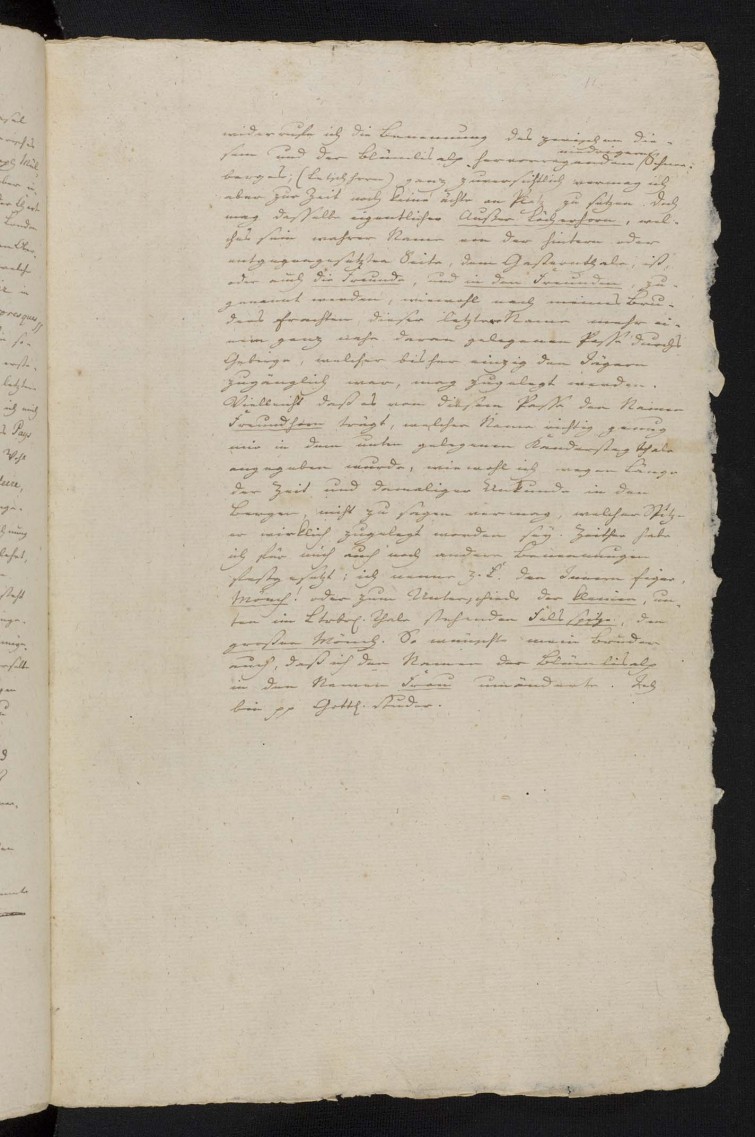 11
widerrufe ich die Benennung des zwischen die-
sem und der Blümlisalp hervorragenden niedrigern Schnee-
berges; (Letschhorn) ganz zuversichtlich vermag ich
aber zur Zeit noch keine ächte an Platz zu setzen. Doch
mag dasselbe eigentlicher Außer Lötzerhorn, wel-
ches sein wahrer Name an der hintern oder
entgegengesetzten Seite, dem Gasternthale, ist,
oder auch die Freunde, und in den Freunden zu-
genannt werden, wiewohl nach meines Bru-
ders Erachten dieser letztere Name mehr ei-
nem ganz nahe daran gelegenen Passe durchs
Gebirge, welcher bisher einzig den Jägern
zugänglich war, mag zugelegt werden.
Vielleicht daß es von diesem Passe den Namen
Freundhorn trägt, welcher Name richtig genug
mir in dem unten gelegenen Kandersteg Thale
angegeben wurde, wiewohl ich wegen Länge
der Zeit und damaliger Unkunde in den
Bergen, nicht zu sagen vermag, welcher Spitz-
e wirklich zugelegt worden sey. Seither habe
ich für mich auch noch andere Benennungen
festgesetzt; ich nenne z. E. den Innern Eiger,
Mönch! oder zum Unterschiede der kleinen, un-
ten im Ltrbr. Thale stehenden Fels Spitze, den
großen Mönch. So wünscht mein Bruder
auch, daß ich den Namen der Blümlisalp
in den Namen Frau umänderte. Ich
bin pp Gottl. Studer.